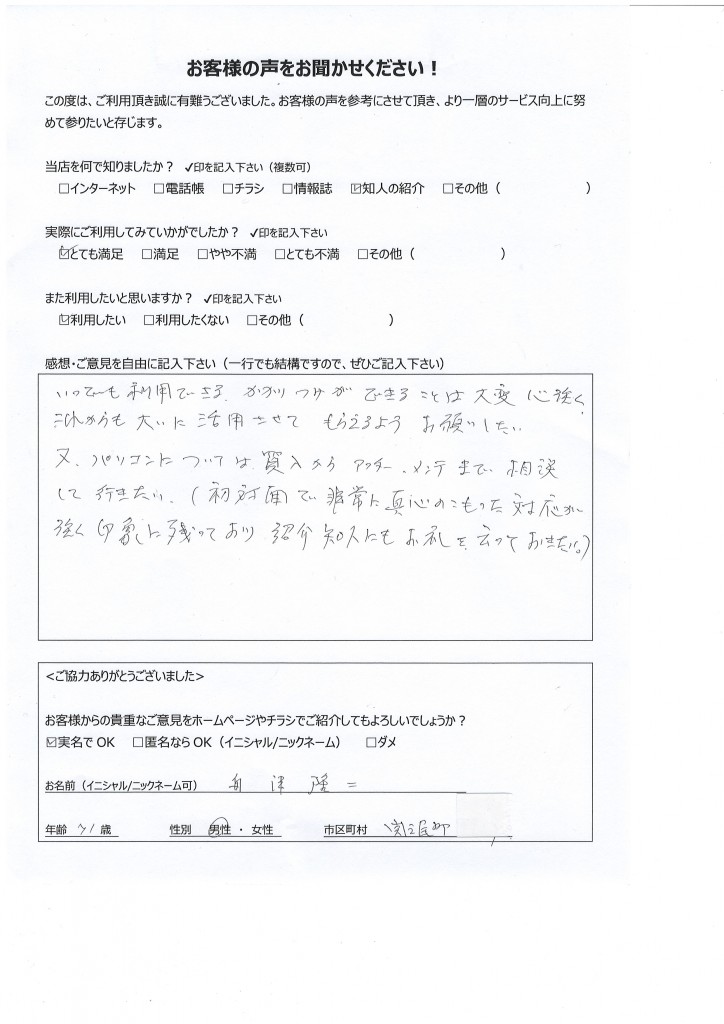 お客様の声をお聞かせください！
この度は、ご利用頂き誠に有難うございました。お客様の声を参考にさせて頂き、より一層のサービス向上に努
めて参りたいと存じます。
当店を何で知りましたか？ ✓印を記入下さい（複数可）
□インターネット □電話帳 □チラシ □情報誌 ☑知人の紹介 □その他（ ）
実際にご利用してみていかがでしたか？ ✓印を記入下さい
☑とても満足 □満足 □やや不満 □とても不満 □その他（ ）
また利用したいと思いますか？ ✓印を記入下さい
☑利用したい □利用したくない □その他（ ）
感想・ご意見を自由に記入下さい（一行でも結構ですので、ぜひご記入下さい）
いつでも利用できる、かかりつけができることは大変心強く、
これからも大いに活用させてもらえるようお願いしたい
又、パソコンについては、買入からアフター、メンテまで、相談
して行きたい。（初対面で、非常に真心のこもった対応が
強く印象に残っており 紹介知人にもお礼を云っておきたい。）
＜ご協力ありがとうございました＞
お客様からの貴重なご意見をホームページやチラシでご紹介してもよろしいでしょうか？
☑実名で OK □匿名なら OK（イニシャル/ニックネーム） □ダメ
お名前（イニシャル/ニックネーム可） 舟津隆二
年齢 71 歳 性別 男性 ・ 女性 市区町村